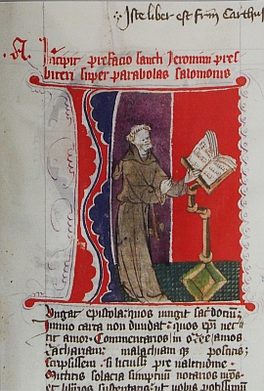 Iste liber est frm Carthus
A. Incipit prefacio sancti Jeronimi pres
biteri super parabolas salomonis
Iungat epistola quos iungit sacerdociū
Immo carta non diuidat quos xpi nec
tit amor Commentarios in ozee amos
zachariam malachiam quoque poscitis
scripsissem si licuisset pre valitudine
mittitis solacia sumptuum notarios nr̄os
et librarios sustentatis ut vobis potissimū